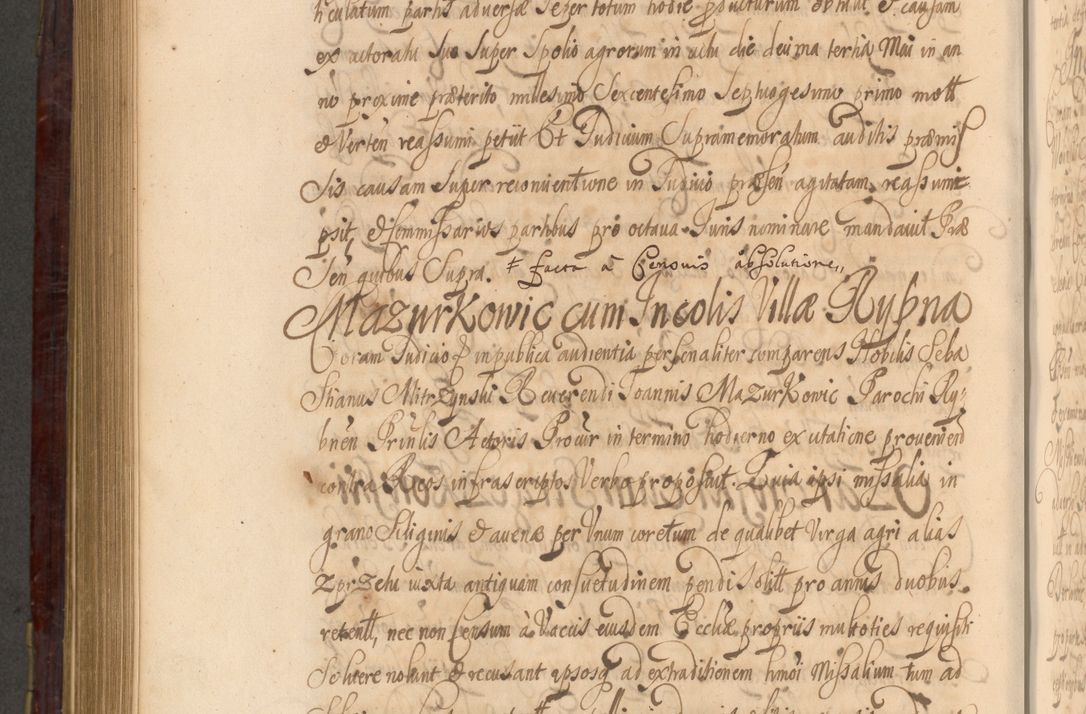 ticulatum partis adversæ se per totum hodie producturum obtulit et causam
ex actoratu suo super spolio agrorum in actu die decima tertia Maii in an
no proxime præterito millesimo sexcentesimo septuagesimo primo mott
et verten reassumi petiit Et Judicium supramemoratum auditis præmis
sis causam super reconventione in Judicio præsen agitatam reassumi
psit, et Commissarios partibus pro octava Juris nominare mandavit Præ
sen quibus supra. # facta à absolutione,,
Mazurkowic cum Incolis Villæ Rybna
Coram Judicio & in publica audientia personaliter comparens Nobilis Seba
stianus Mitrzynski Reverendi Joannis Mazurkowic Parochi Ry-
bnen Prinlis Actoris Procur in termino hodierno ex citatione provenien
contra Reos infrascriptos Verbo proposuit. Quia ipsi missalia in
grano Siliginis et avenæ per Unum coretum de qualibet Virga agri alias
z przetu iuxta antiquam consuetudinem pendi solitt pro annis duobus
retentt, nec non Censum à Vaccis eiusdem Eccliæ propriis multoties requisiti
solvere nolunt et recusant ipsosq ad extraditionem hmoi Missalium tum ad